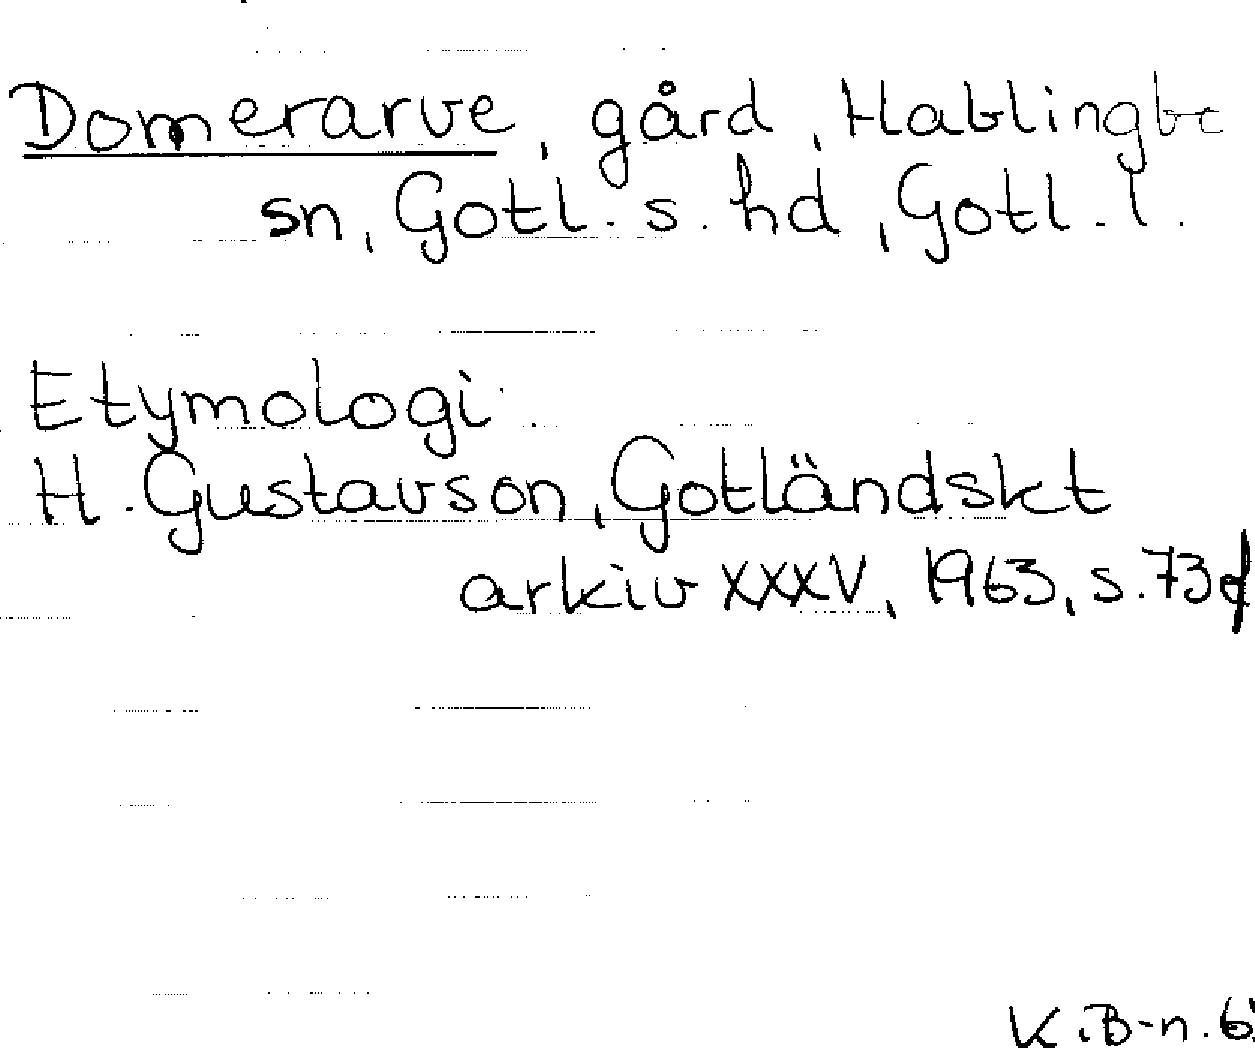 Domerarve, gård, Hablingbo
sn, Gotl. s. hd, Gotl. l.
Etymologi
H. Gustavson, Gotländskt
arkiv XXXV, 1963, s. 73f
K.B-n. 6